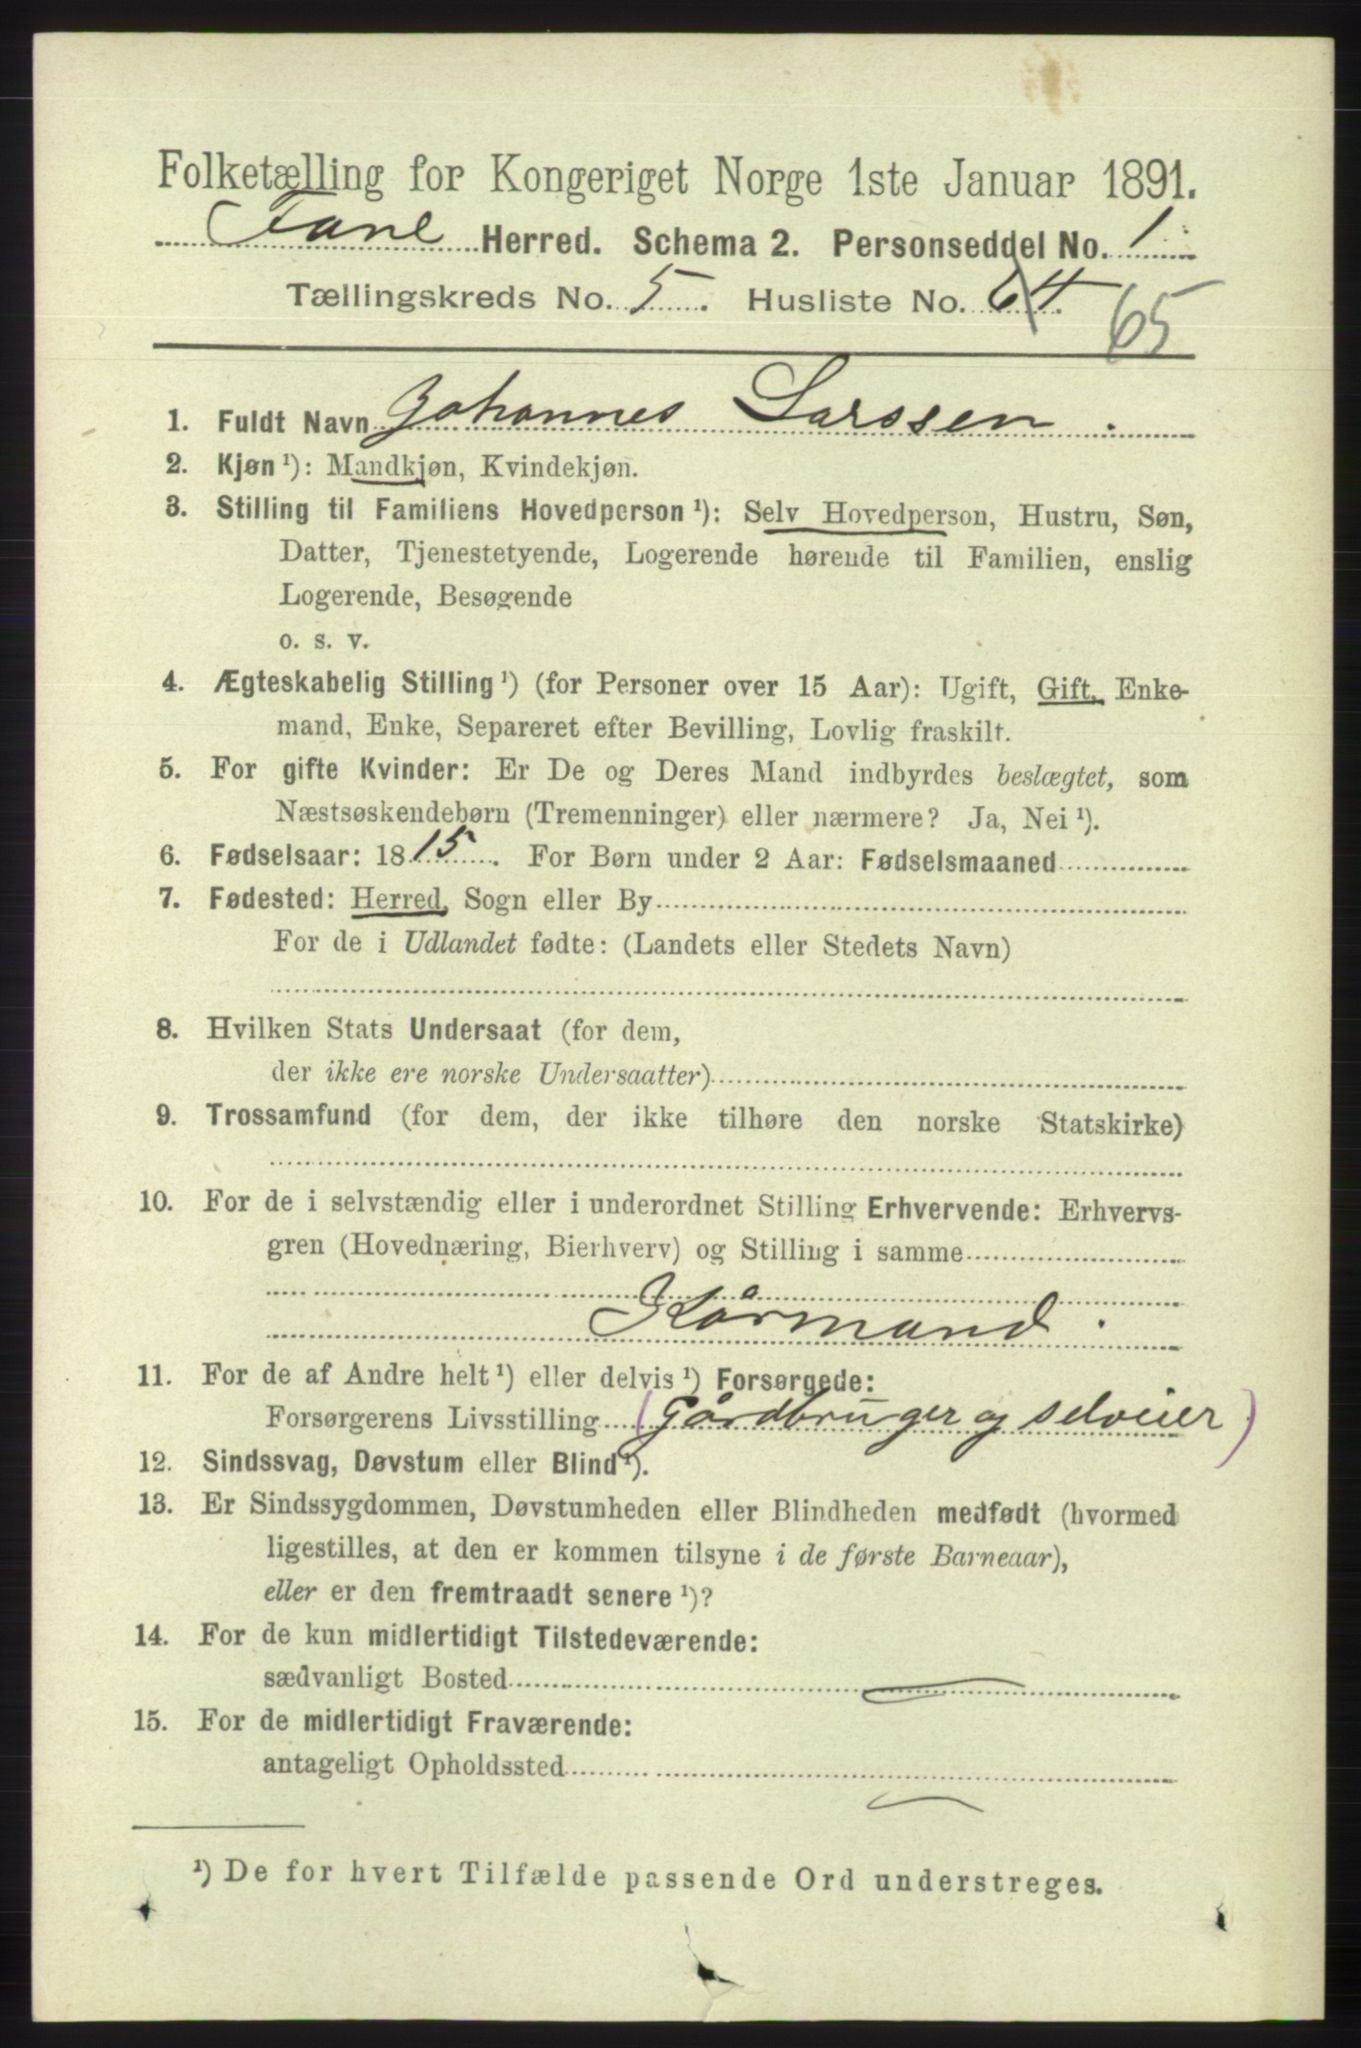 Folketælling for Kongeriget Norge 1ste Januar 1891.
Fane Herred. Schema 2. Personseddel No. 1
Tællingskreds No. 5. Husliste No. 64. 65
1. Fuldt Navn Johannes Larssen.
2. Kjøn ¹): Mandkjøn, Kvindekjøn.
3. Stilling til Familiens Hovedperson ¹): Selv Hovedperson, Hustru, Søn,
Datter, Tjenestetyende, Logerende hørende til Familien, enslig
Logerende, Besøgende
o. s. v.
4. Ægteskabelig Stilling ¹) (for Personer over 15 Aar): Ugift, Gift, Enke-
mand, Enke, Separeret efter Bevilling, Lovlig fraskilt.
5. For gifte Kvinder: Er De og Deres Mand indbyrdes beslægtet, som
Næstsøskendebørn (Tremenninger) eller nærmere? Ja, Nei ¹).
6. Fødselsaar: 1815. For Børn under 2 Aar: Fødselsmaaned
7. Fødested: Herred, Sogn eller By
For de i Udlandet fødte: (Landets eller Stedets Navn)
8. Hvilken Stats Undersaat (for dem,
der ikke ere norske Undersaatter)
9. Trossamfund (for dem, der ikke tilhøre den norske Statskirke)
10. For de i selvstændig eller i underordnet Stilling Erhvervende: Erhvervs-
gren (Hovednæring, Bierhverv) og Stilling i samme
Kårmand.
11. For de af Andre helt ¹) eller delvis ¹) Forsørgede:
Forsørgerens Livsstilling (Gårdbruger og selveier)
12. Sindssvag, Døvstum eller Blind ¹).
13. Er Sindssygdommen, Døvstumheden eller Blindheden medfødt (hvormed
ligestilles, at den er kommen tilsyne i de første Barneaar),
eller er den fremtraadt senere ¹)?
14. For de kun midlertidigt Tilstedeværende:
sædvanligt Bosted
15. For de midlertidigt Fraværende:
antageligt Opholdssted
¹) De for hvert Tilfælde passende Ord understreges.